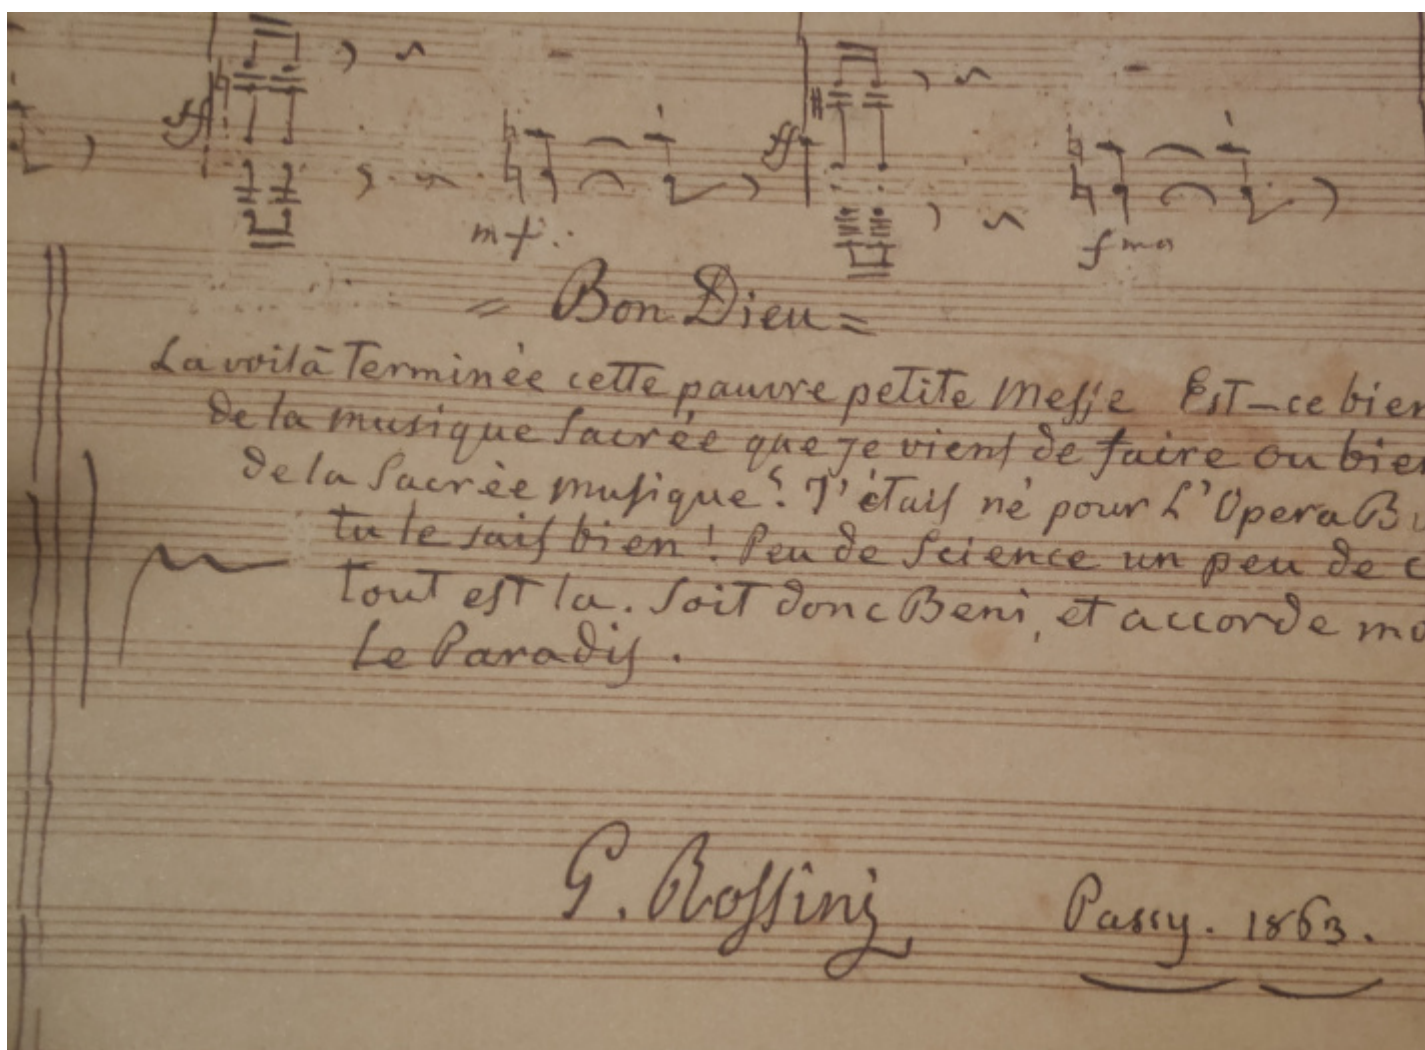 ff
ff
mf.
fmo
= Bon Dieu =
La voilà terminée cette pauvre petite Messe Est-ce bien
de la musique Sacrée que je viens de faire ou bien
de la Sacrée musique? J'étais né pour L'Opera B
tu le sais bien! Peu de Science un peu de c
tout est la. Soit donc Beni, et accorde mo
Le Paradis.
G. Rossini
Passy. 1863.